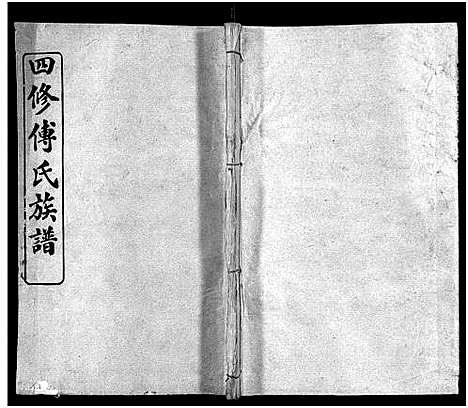 四修傅氏族譜